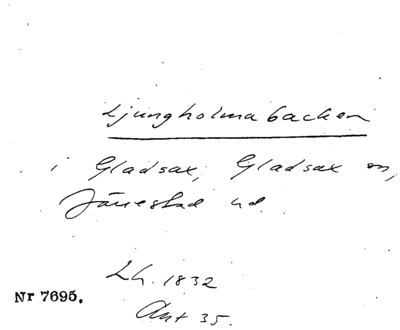 Ljungholmabacken
i Gladsax, Gladsax sn,
Järrestad hd.
Lh. 1832
Nr 7695.
Akt 35.